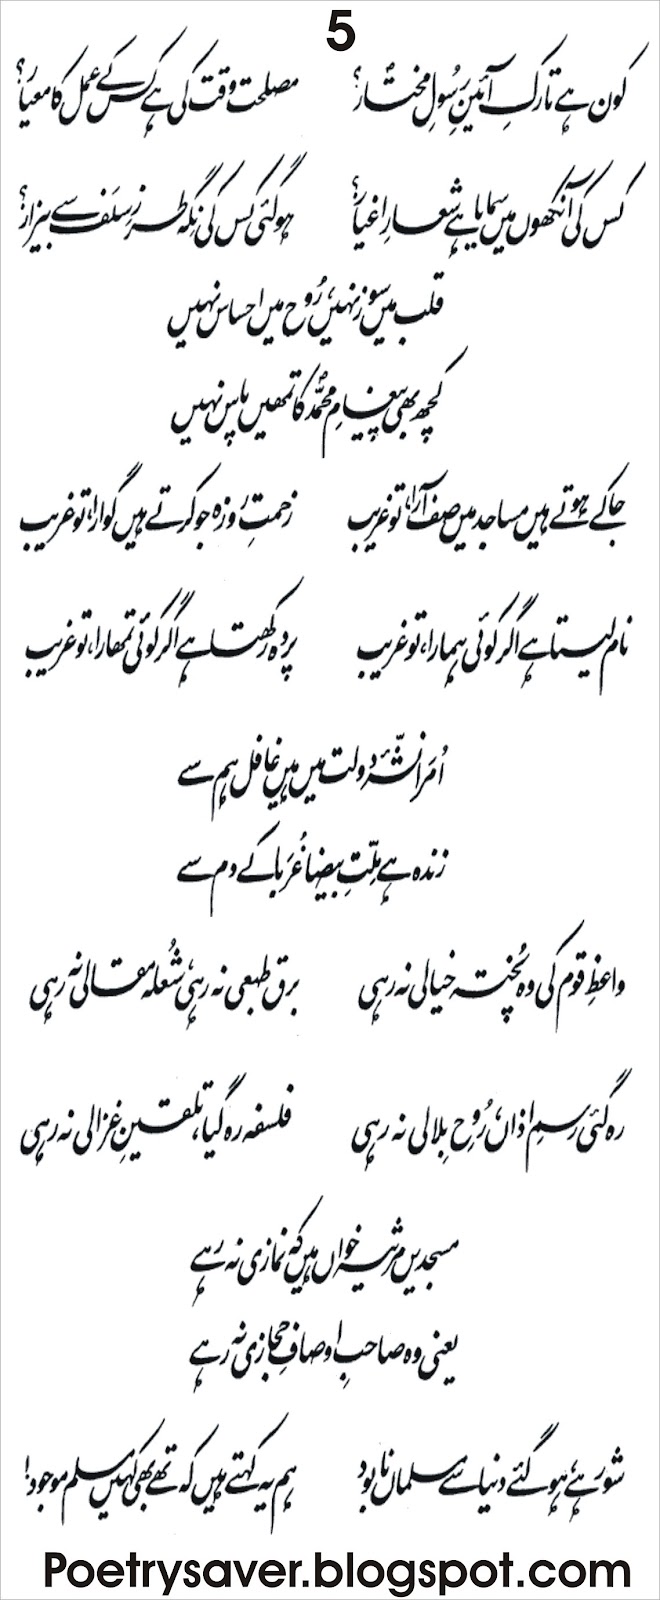 5
کون ہے تارکِ آئینِ رسُولِ مختار؟ مصلحت وقت کی ہے کس کے عمل کا معیار؟
کس کی آنکھوں میں سمایا ہے شعارِ اغیار؟ ہوگئی کس کی نِگہ طرزِ سلَف سے بیزار؟
قلب میں سوز نہیں، رُوح میں احساس نہیں
کچھ بھی پیغامِ محمدؐ کا تمھیں پاس نہیں
جا کے ہوتے ہیں مساجد میں صف آرا، تو غریب زحمتِ روزہ جو کرتے ہیں گوارا، تو غریب
نام لیتا ہے اگر کوئی ہمارا، تو غریب پردہ رکھتا ہے اگر کوئی تمھارا، تو غریب
اُمَرا نشّۂ دولت میں ہیں غافل ہم سے
زندہ ہے مِلّتِ بیضا غُرَبا کے دم سے
واعظِ قوم کی وہ پُختہ خیالی نہ رہی برق طبعی نہ رہی، شُعلہ مقالی نہ رہی
رہ گئی رسمِ اذاں، رُوحِ بِلالی نہ رہی فلسفہ رہ گیا، تلقینِ غزالی نہ رہی
مسجدیں مرثیہ خواں ہیں کہ نمازی نہ رہے
یعنی وہ صاحبِ اوصافِ حجازی نہ رہے
شور ہے، ہو گئے دنیا سے مسلماں نابود ہم یہ کہتے ہیں کہ تھے بھی کہیں مسلم موجود!
Poetrysaver.blogspot.com